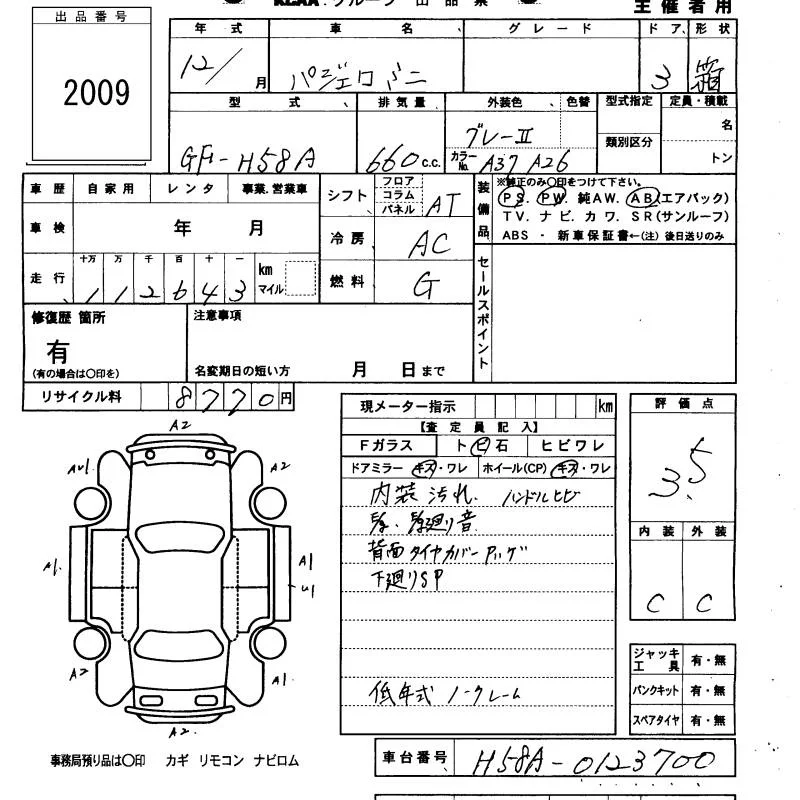 KCAA.グループ 出品票
主催者用
出品番号
2009
年式
車名
グレード
ドア
形状
12/
月
パジェロミニ
3
箱
型式
排気量
外装色
色替
型式指定
定員・積載
GF-H58A
660 c.c.
グレーII
カラーNo. A37 A26
類別区分
名
トン
車歴
自家用
レンタ
事業.営業車
シフト
フロア
コラム
パネル
AT
装備品
※純正のみ〇印をつけて下さい。
PS. PW. 純AW. AB(エアバック)
TV. ナビ. カワ. SR(サンルーフ)
ABS ・ 新車保証書←(注) 後日送りのみ
車検
年 月
冷房
AC
走行
十万 万 千 百 十 一
112643
km
マイル
燃料
G
セールスポイント
修復歴 箇所
有
(有の場合は〇印を)
注意事項
名変期日の短い方 月 日まで
リサイクル料
8770円
現メーター指示
km
評価点
3.5
【査定員記入】
Fガラス
トビ石
ヒビワレ
ドアミラー キズ・ワレ
ホイール(CP) キズ・ワレ
内装汚れ. ハンドルヒビ
背面タイヤカバーアリゲ
下廻りSP
低年式 ノークレーム
内装
外装
C
C
A2
A2
A1
A1
U1
A2
A1
A2
ジャッキ工具 有・無
パンクキット 有・無
スペアタイヤ 有・無
事務局預り品は〇印 カギ リモコン ナビロム
車台番号
H58A-0123700